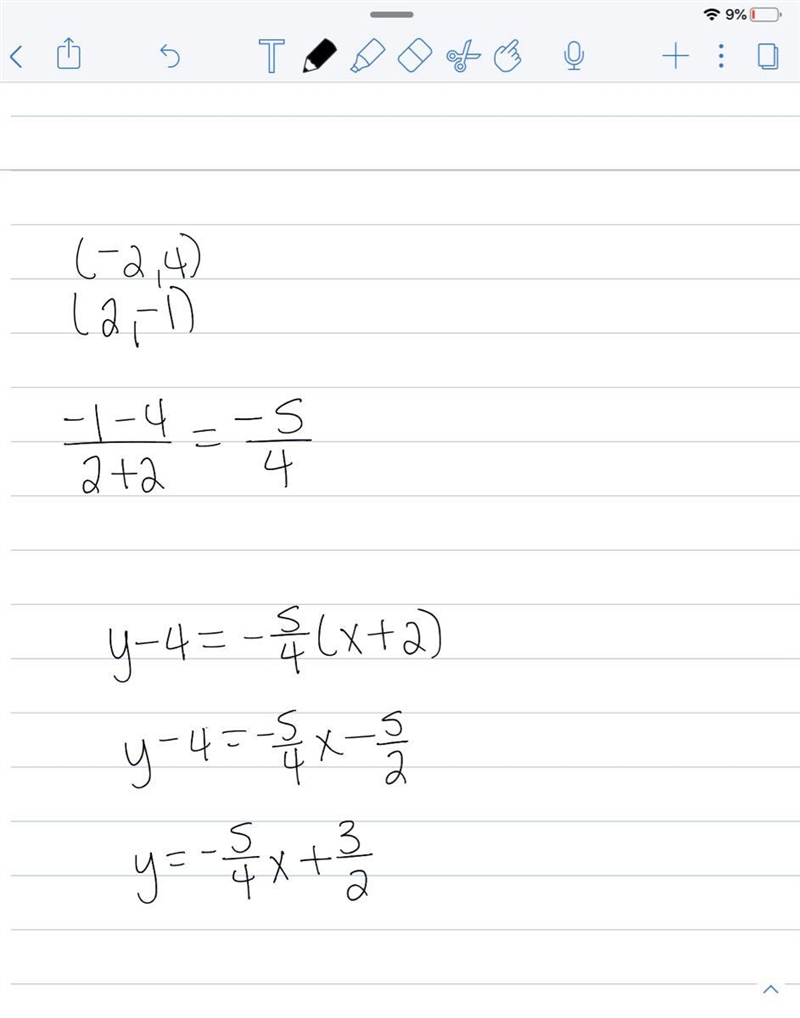 9%
T
(-2,4)
(2,-1)
-1-4/2+2 = -5/4
y-4=-5/4(x+2)
y-4=-5/4x-5/2
y=-5/4x+3/2